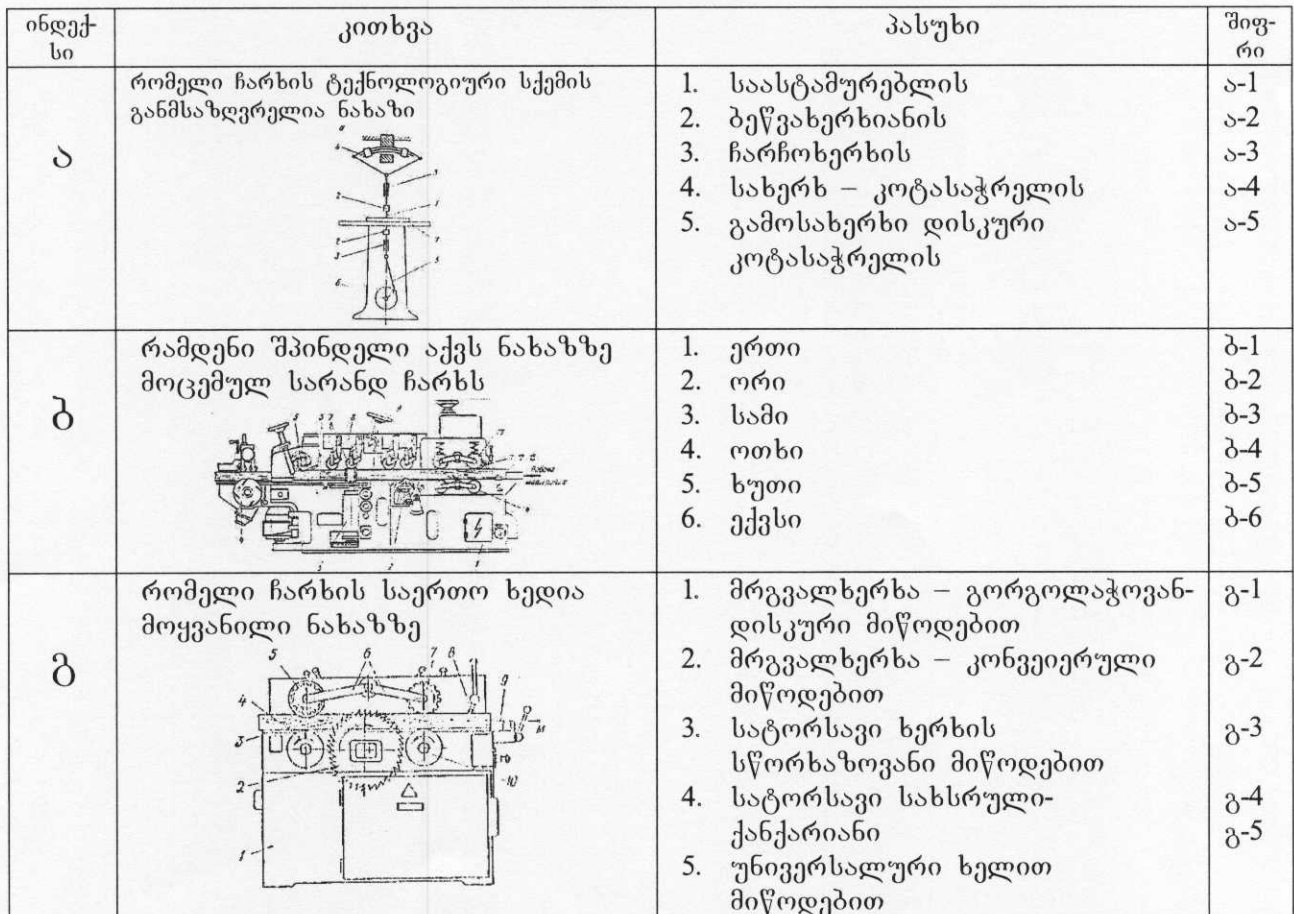 ინდექ-
სი
კითხვა
პასუხი
შიფ-
რი
ა
რომელი ჩარხის ტექნოლოგიური სქემის
განმსაზღვრელია ნახაზი
1. საასტამურებლის
2. ბეწვახერხიანის
3. ჩარჩოხერხის
4. სახერხ – კოტასაჭრელის
5. გამოსახერხი დისკური
კოტასაჭრელის
ა-1
ა-2
ა-3
ა-4
ა-5
ბ
რამდენი შპინდელი აქვს ნახაზზე
მოცემულ სარანდ ჩარხს
1. ერთი
2. ორი
3. სამი
4. ოთხი
5. ხუთი
6. ექვსი
ბ-1
ბ-2
ბ-3
ბ-4
ბ-5
ბ-6
გ
რომელი ჩარხის საერთო ხედია
მოყვანილი ნახაზზე
5 6 7 8
9
4
M
3
2
10
1
1. მრგვალხერხა – გორგოლაჭოვან-
დისკური მიწოდებით
2. მრგვალხერხა – კონვეიერული
მიწოდებით
3. სატორსავი ხერხის
სწორხაზოვანი მიწოდებით
4. სატორსავი სახსრული-
ქანქარიანი
5. უნივერსალური ხელით
მიწოდებით
გ-1
გ-2
გ-3
გ-4
გ-5